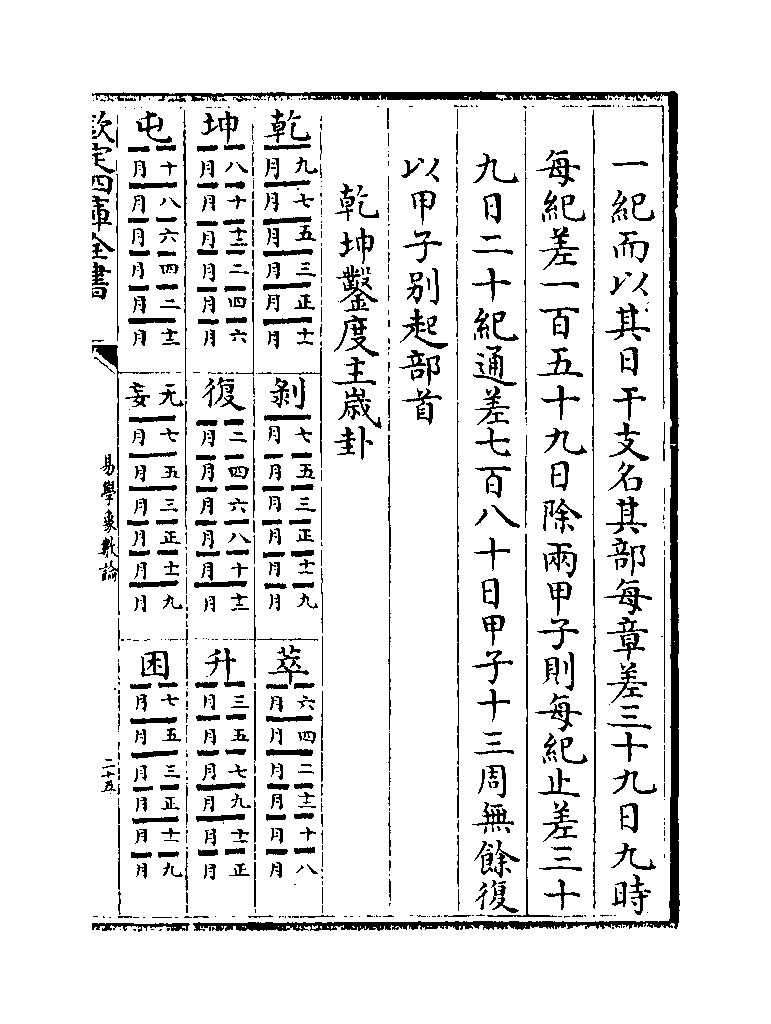 一紀而以其日干支名其部每章差三十九日九時
每紀差一百五十九日除兩甲子則每紀止差三十
九日二十紀通差七百八十日甲子十三周無餘復
以甲子別起部首
乾坤鑿度主歳卦
乾 九月 七月 五月 三月 正月 十一月
剝 七月 五月 三月 正月 十一月 九月
萃 六月 四月 二月 十二月 十月 八月
坤 八月 十月 十二月 二月 四月 六月
復 二月 四月 六月 八月 十月 十二月
升 三月 五月 七月 九月 十一月 正月
屯 十月 八月 六月 四月 二月 十二月
无妄 七月 五月 三月 正月 十一月 九月
困 七月 五月 三月 正月 十一月 九月
欽定四庫全書
易學象數論
二十五